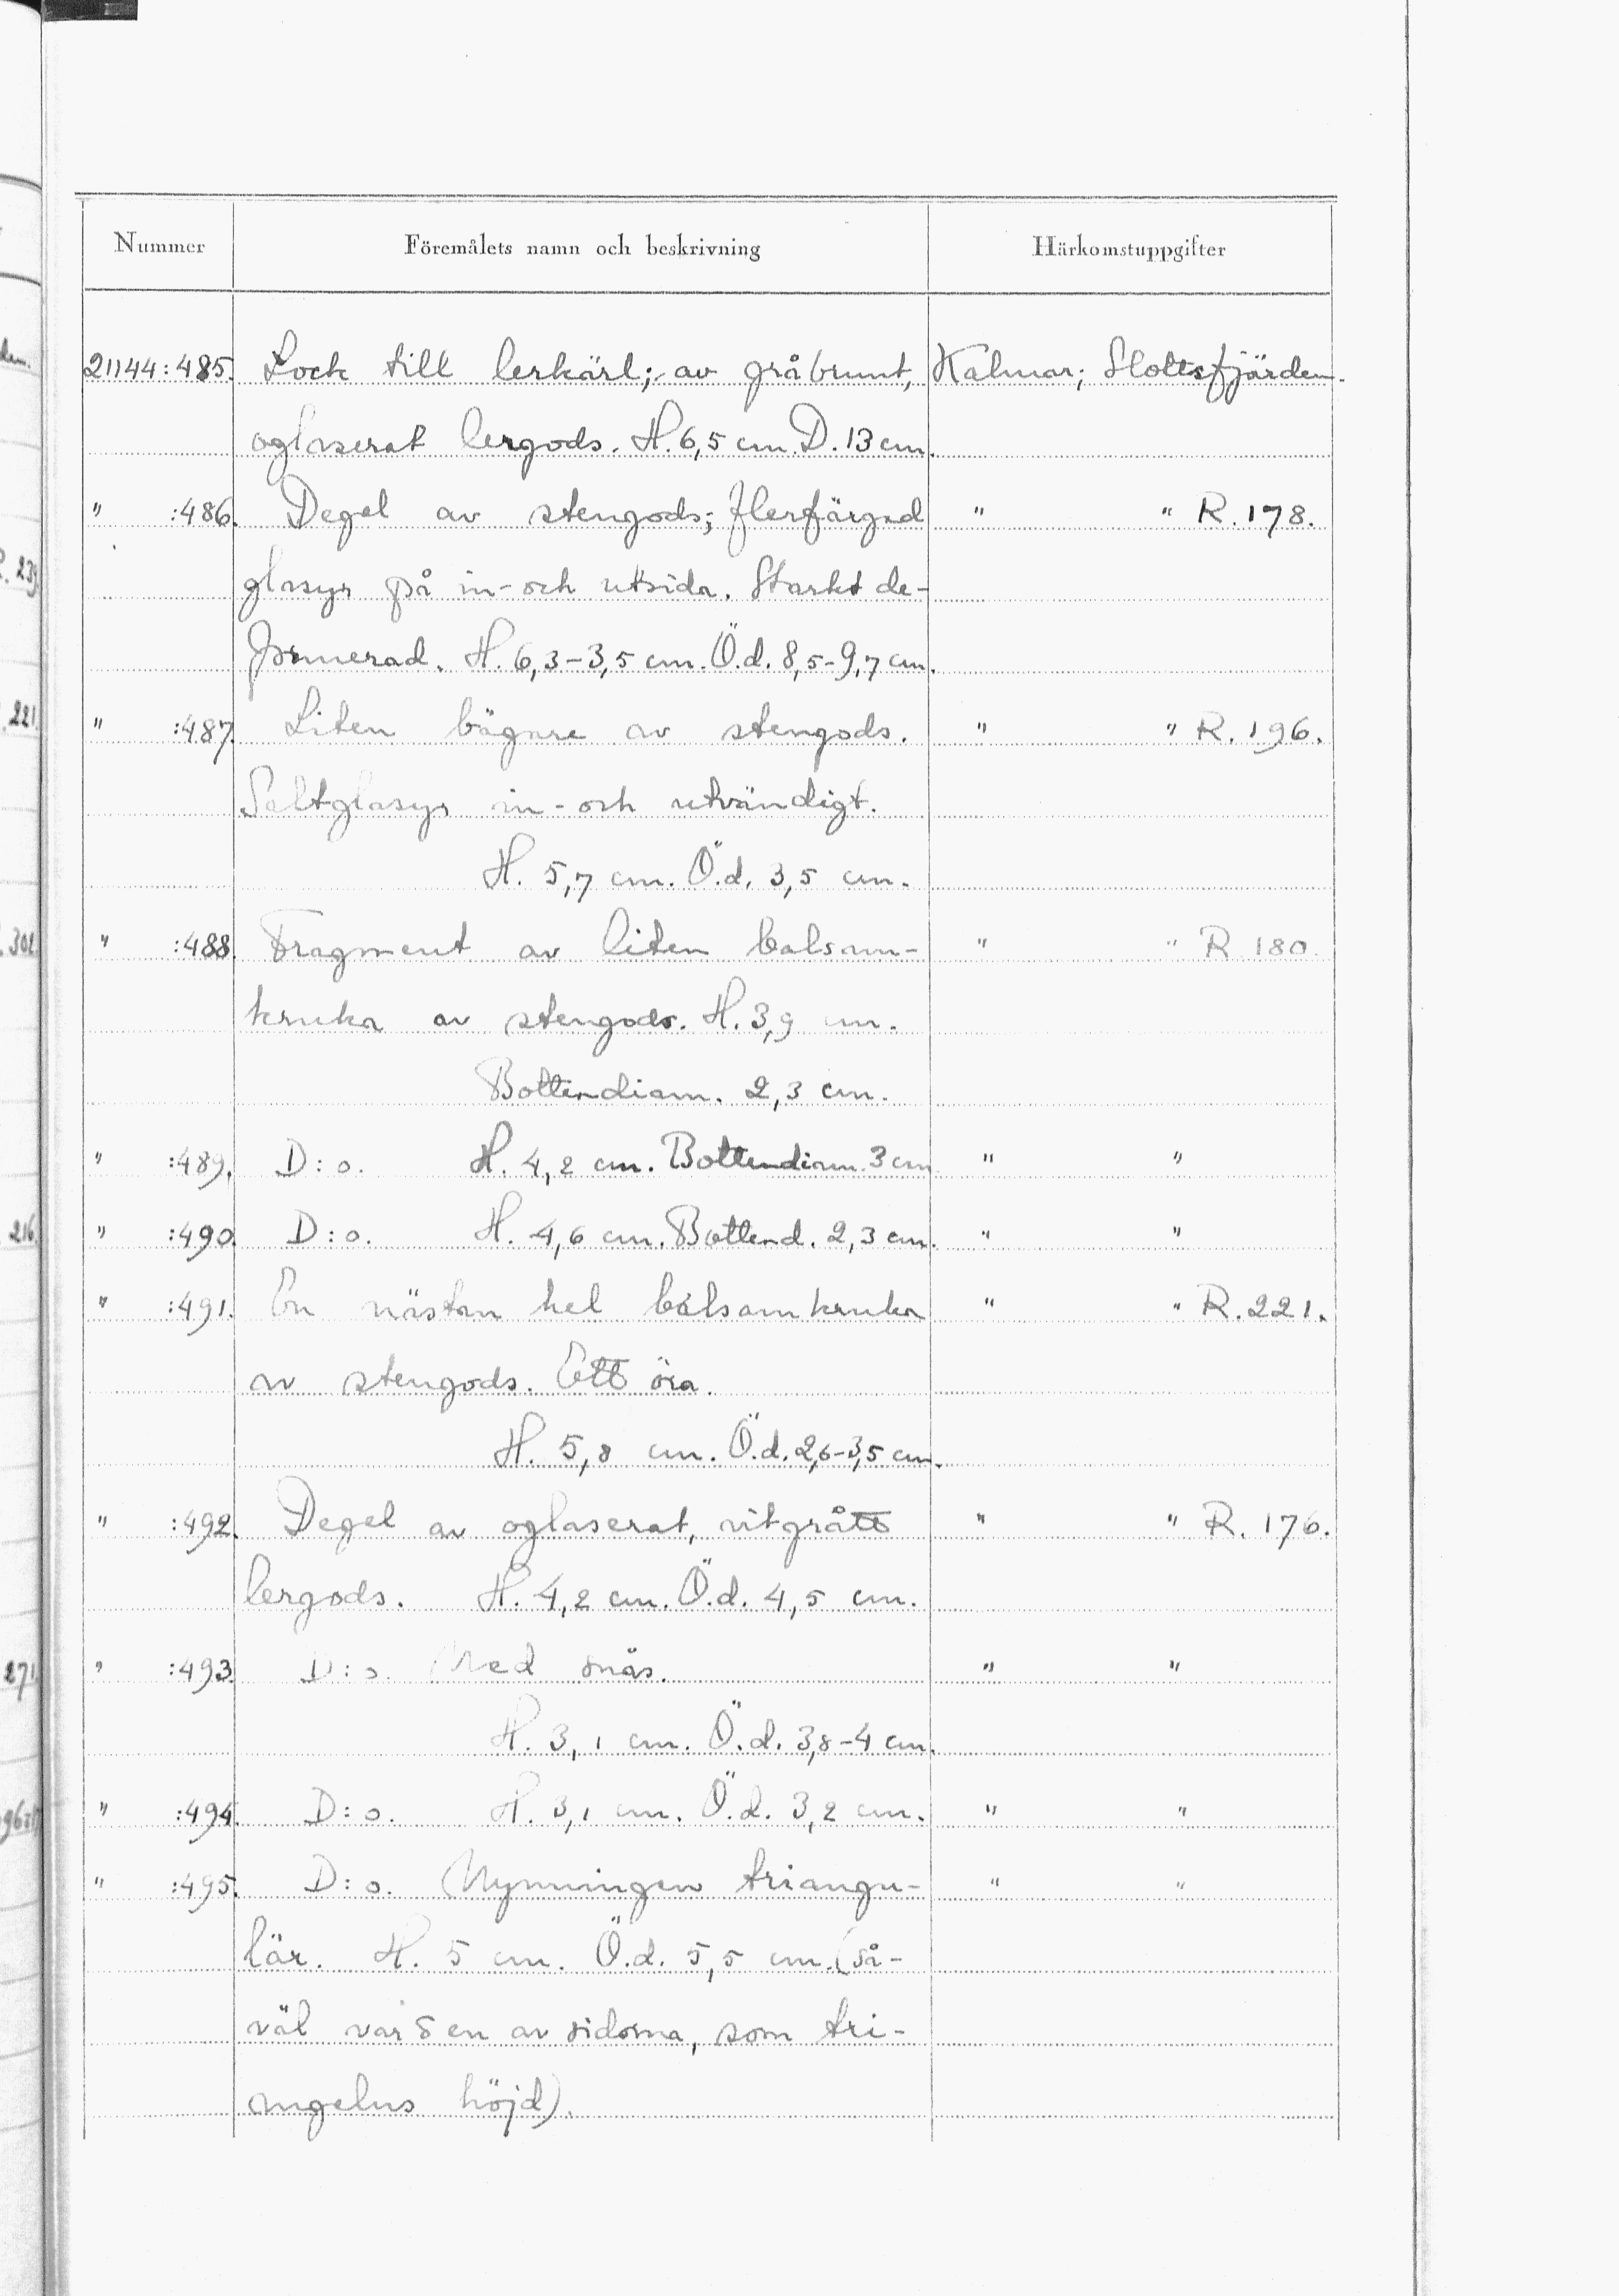 Nummer Föremålets namn och beskrivning Härkomstuppgifter
21144:485. Lock till lerkärl; av gråbrunt, Kalmar; Slottsfjärden.
oglaserat lergods. H. 6,5 cm. D. 13 cm.
" :486. Degel av stengods; flerfärgad " " R. 178.
glasyr på in- och utsida. Starkt de-
formerad. H. 6,3-3,5 cm. Ö.d. 8,5-9,7 cm.
" :487. Liten bägare av stengods. " " R. 196.
Saltglasyr in- och utvändigt.
H. 5,7 cm. Ö.d. 3,5 cm.
" :488. Fragment av liten balsam- " " R. 180.
kruka av stengods. H. 3,9 cm.
Bottendiam. 2,3 cm.
" :489. D:o. H. 4,2 cm. Bottendiam. 3 cm. " "
" :490. D:o. H. 4,6 cm. Bottend. 2,3 cm. " "
" :491. En nästan hel balsamkruka " " R. 221.
av stengods. Ett öra.
H. 5,8 cm. Ö.d. 2,6-3,5 cm.
" :492. Degel av oglaserat, vitgrått " " R. 176.
lergods. H. 4,2 cm. Ö.d. 4,5 cm.
" :493. D:o. Med snås. " "
H. 3,1 cm. Ö.d. 3,8-4 cm.
" :494. D:o. H. 3,1 cm. Ö.d. 3,2 cm. " "
" :495. D:o. Mynningen triangu- " "
lär. H. 5 cm. Ö.d. 5,5 cm. (så-
väl var o en av sidorna, som tri-
angelns höjd).